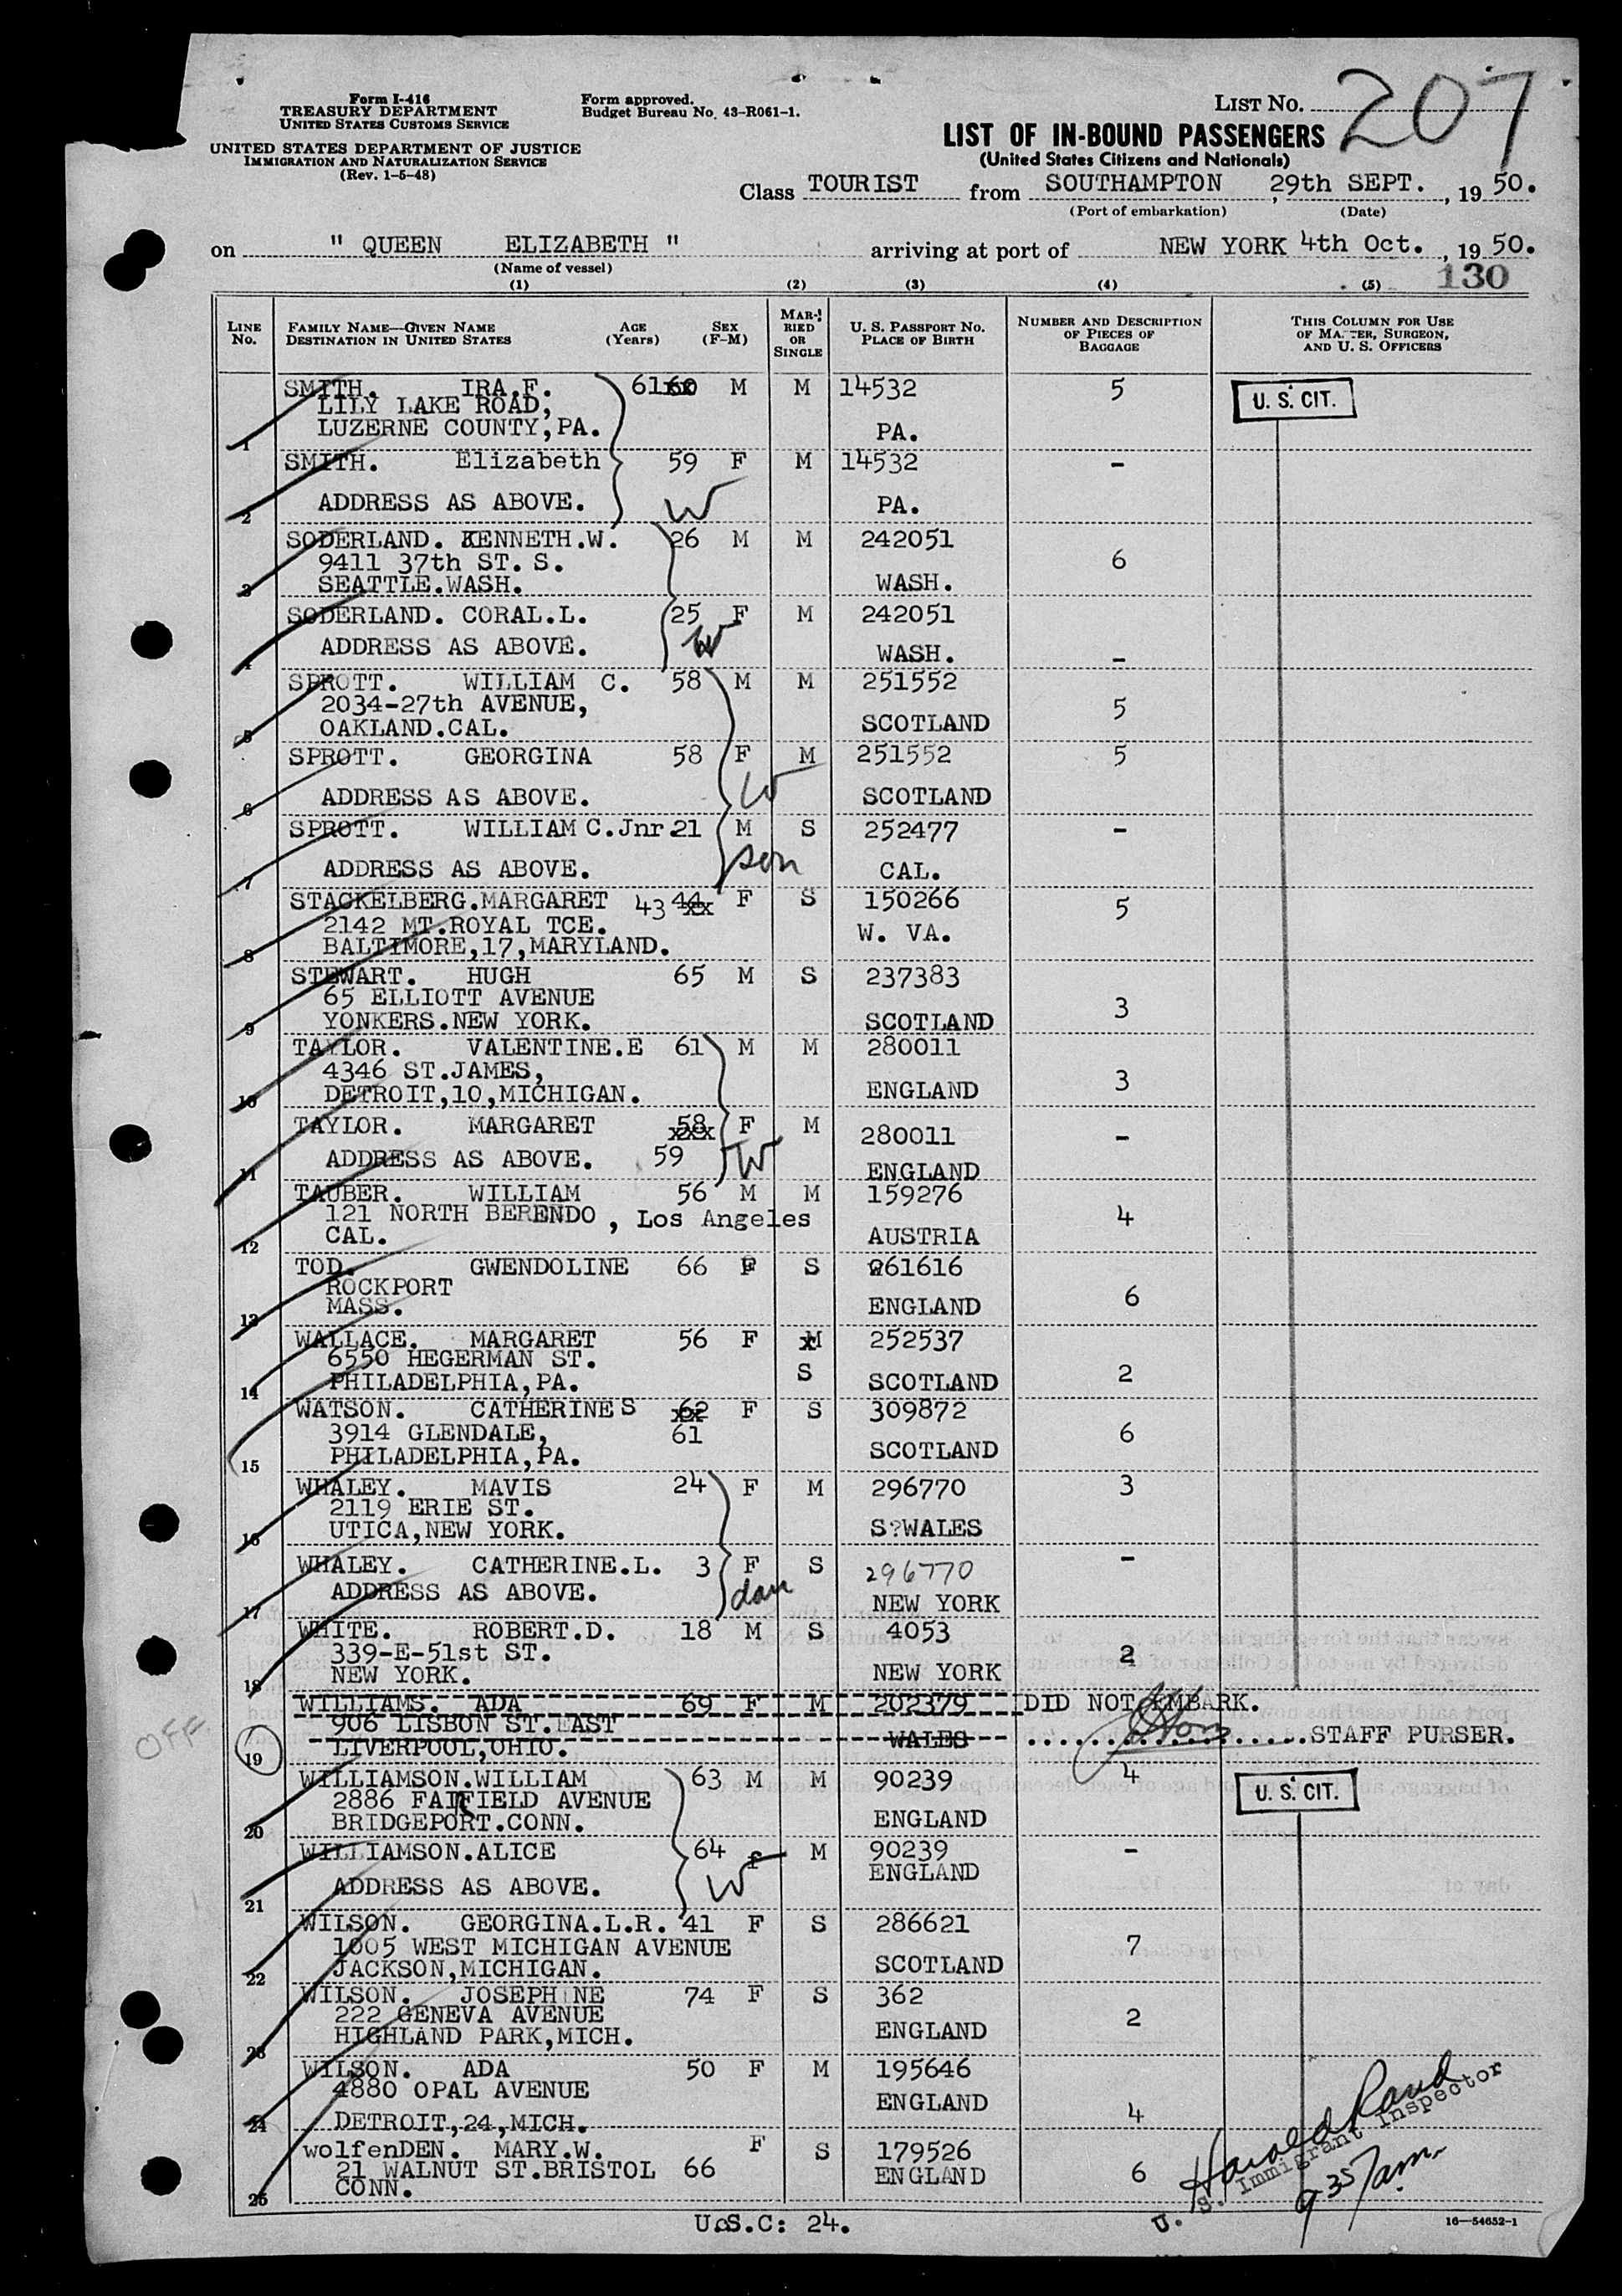 Form I-416
TREASURY DEPARTMENT
UNITED STATES CUSTOMS SERVICE
UNITED STATES DEPARTMENT OF JUSTICE
IMMIGRATION AND NATURALIZATION SERVICE
(Rev. 1-5-48)
Form approved.
Budget Bureau No. 43-R061-1.
LIST NO. 207
LIST OF IN-BOUND PASSENGERS
(United States Citizens and Nationals)
Class TOURIST from SOUTHAMPTON, 29th SEPT., 1950.
(Port of embarkation) (Date)
on " QUEEN ELIZABETH " arriving at port of NEW YORK 4th Oct., 1950.
(Name of vessel)
130
(1) (2) (3) (4) (5)
LINE NO. FAMILY NAME—GIVEN NAME DESTINATION IN UNITED STATES AGE (Years) SEX (F-M) MARRIED OR SINGLE U. S. PASSPORT NO. PLACE OF BIRTH NUMBER AND DESCRIPTION OF PIECES OF BAGGAGE THIS COLUMN FOR USE OF MASTER, SURGEON, AND U. S. OFFICERS
SMITH. IRA.F. 61 60 M M 14532 5 U. S. CIT.
LILY LAKE ROAD,
1 LUZERNE COUNTY,PA. PA.
SMITH. Elizabeth 59 F M 14532 -
2 ADDRESS AS ABOVE. W PA.
SODERLAND. KENNETH.W. 26 M M 242051
9411 37th ST. S. 6
3 SEATTLE.WASH. WASH.
SODERLAND. CORAL.L. 25 F M 242051
4 ADDRESS AS ABOVE. W WASH. -
SPROTT. WILLIAM C. 58 M M 251552
2034-27th AVENUE, 5
5 OAKLAND.CAL. SCOTLAND
SPROTT. GEORGINA 58 F M 251552 5
6 ADDRESS AS ABOVE. W SCOTLAND
SPROTT. WILLIAM C.Jnr. 21 M S 252477 -
7 ADDRESS AS ABOVE. son CAL.
STACKELBERG.MARGARET 43 44 F S 150266 5
2142 MT.ROYAL TCE. W. VA.
8 BALTIMORE,17,MARYLAND.
STEWART. HUGH 65 M S 237383
65 ELLIOTT AVENUE 3
9 YONKERS.NEW YORK. SCOTLAND
TAYLOR. VALENTINE.E 61 M M 280011
4346 ST.JAMES, 3
10 DETROIT,10,MICHIGAN. ENGLAND
TAYLOR. MARGARET 58 F M 280011 -
11 ADDRESS AS ABOVE. 59 W ENGLAND
TAUBER. WILLIAM 56 M M 159276
121 NORTH BERENDO , Los Angeles 4
12 CAL. AUSTRIA
TOD. GWENDOLINE 66 F S 261616
ROCKPORT 6
13 MASS. ENGLAND
WALLACE. MARGARET 56 F M 252537
6550 HEGERMAN ST. S 2
14 PHILADELPHIA,PA. SCOTLAND
WATSON. CATHERINE S 62 F S 309872
3914 GLENDALE, 61 6
15 PHILADELPHIA,PA. SCOTLAND
WHALEY. MAVIS 24 F M 296770 3
2119 ERIE ST.
16 UTICA,NEW YORK. S?WALES
WHALEY. CATHERINE.L. 3 F S 296770 -
17 ADDRESS AS ABOVE. dau NEW YORK
WHITE. ROBERT.D. 18 M S 4053
339-E-51st ST. 2
18 NEW YORK. NEW YORK
WILLIAMS. ADA 69 F M 202379 DID NOT EMBARK.
OFF 906 LISBON ST.EAST WALES STAFF PURSER.
19 LIVERPOOL,OHIO.
WILLIAMSON.WILLIAM 63 M M 90239 4 U. S. CIT.
2886 FAIRFIELD AVENUE
20 BRIDGEPORT.CONN. ENGLAND
WILLIAMSON.ALICE 64 F M 90239 -
21 ADDRESS AS ABOVE. W ENGLAND
WILSON. GEORGINA.L.R. 41 F S 286621
1005 WEST MICHIGAN AVENUE 7
22 JACKSON,MICHIGAN. SCOTLAND
WILSON. JOSEPHINE 74 F S 362
222 GENEVA AVENUE 2
23 HIGHLAND PARK,MICH. ENGLAND
WILSON. ADA 50 F M 195646
4880 OPAL AVENUE ENGLAND
24 DETROIT,24,MICH. 4
wolfenDEN. MARY.W. F S 179526
21 WALNUT ST.BRISTOL 66 ENGLAND 6
25 CONN.
Harold Rand
U. S. Immigrant Inspector
9 35 am
U.S.C: 24.
16—54652-1